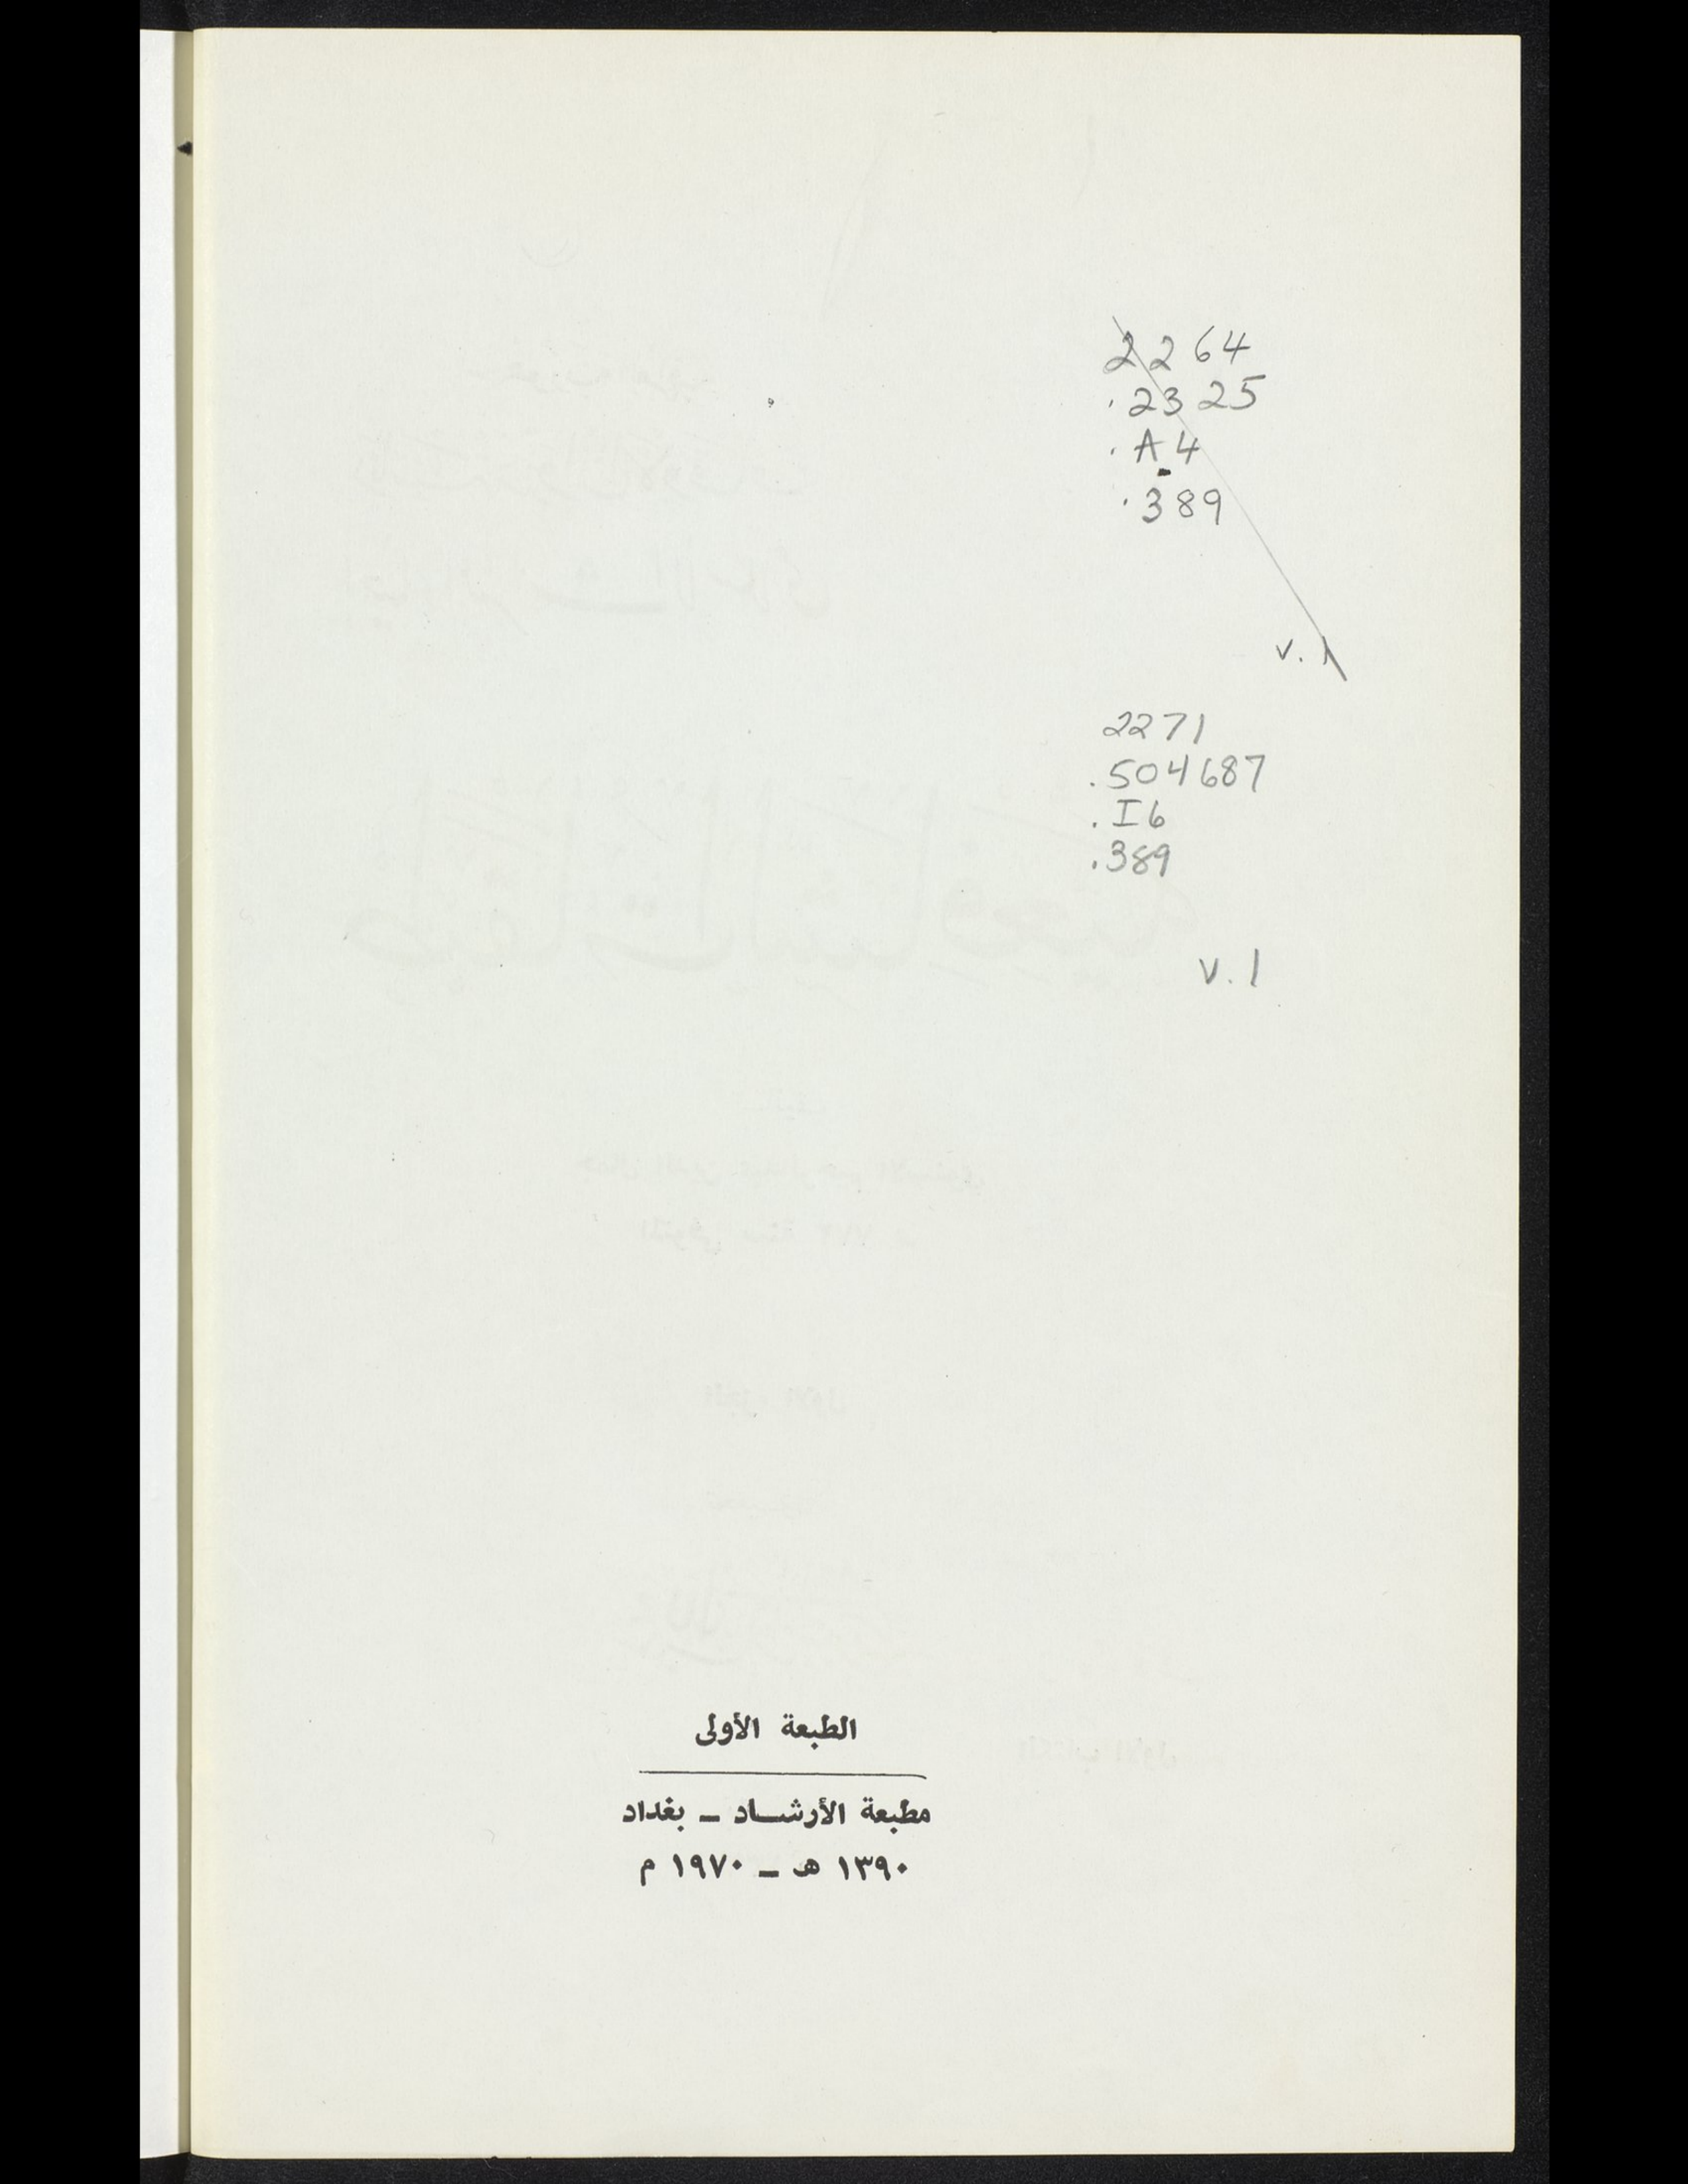 2264
.2325
.A4
.389
v.1
2271
.504687
.I6
.389
v.1
الطبعة الأولى
مطبعة الأرشاد - بغداد
١٣٩٠ هـ - ١٩٧٠ م